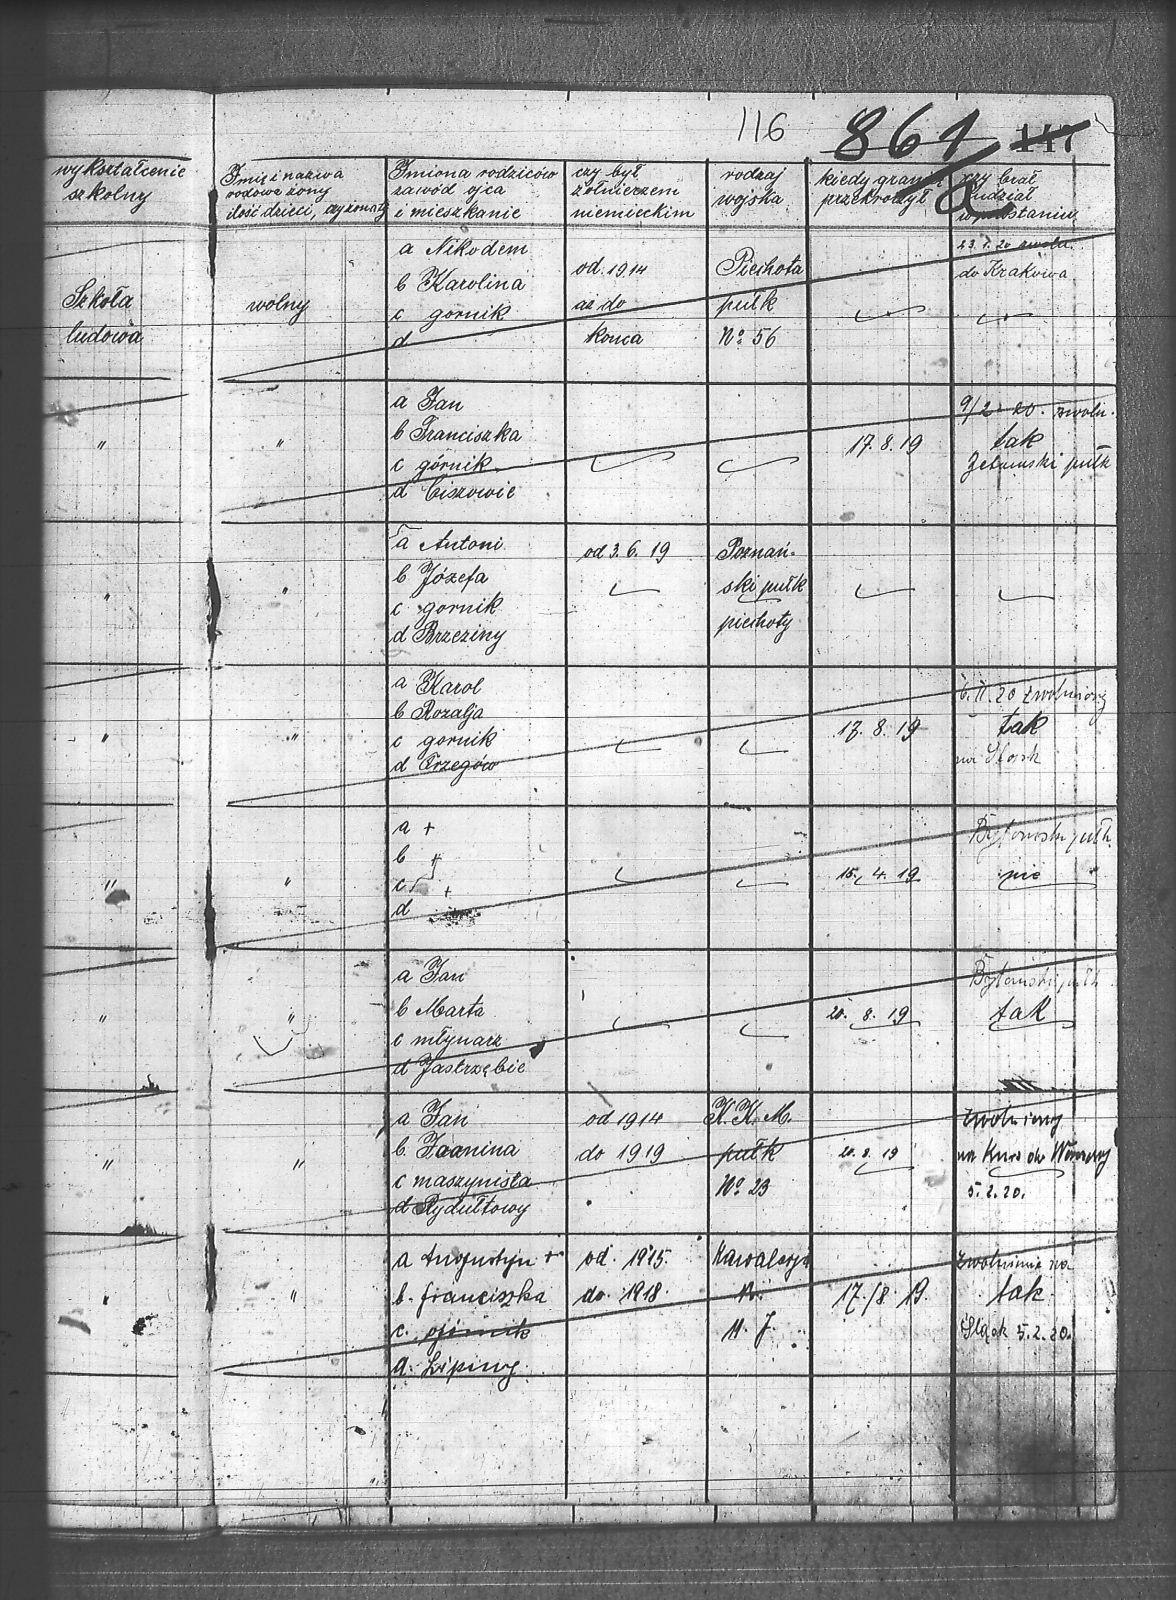 116 861 117
wykształcenie
szkolny
Imię i nazwa
rodowe żony
ilość dzieci, czy żonaty
Imiona rodziców
zawód ojca
i mieszkanie
czy był
żołnierzem
niemieckim
rodzaj
wojska
kiedy granicę
przekroczył
czy brał
udział
w powstaniu
Szkoła
ludowa
wolny
a Nikodem
b Karolina
c gornik
d
od 1914
aż do
konca
Piechota
pułk
No 56
23. 1. 20 zwoln.
do Krakowa
"
"
a Jan
b Franciszka
c górnik
d Ciszowie
17. 8. 19
9/2 - 20. zwoln.
tak
pułk
"
"
a Antoni
b Józefa
c gornik
d Brzeziny
od 3. 6. 19
Poznań-
ski pułk
piechoty
"
"
a Karol
b Rozalja
c gornik
d
17. 8. 19
6. II. 20 zwolniony
tak
na Śląsk
"
"
a +
b +
c +
d
15. 4. 19
Bytomski pułk
nie
"
"
a Jan
b Marta
c młynarz
d Jastrzębie
20. 8. 19
Bytomski pułk
tak
"
"
a Jan
b Joanina
c maszynista
d Rydułtowy
od 1914
do 1919
K. K. M.
pułk
No 23
20. 8. 19
zwolniony
na Kurs do Warszawy
5. 2. 20.
"
"
a Augustyn +
b. franciszka
c. górnik
d. Lipiny
od. 1915.
do. 1918.
Kawalerja
N.
11. J.
17. /8. 19.
zwolnienie na
tak
Śląsk 5. 2. 20.